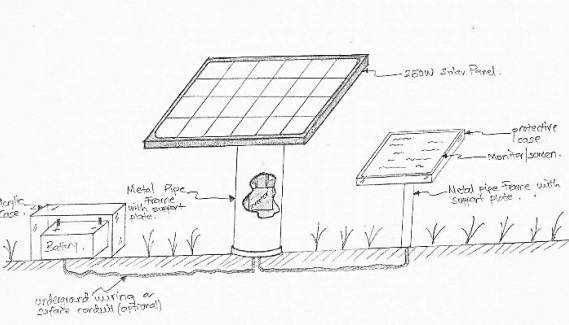 250W Solar Panel.
protective
case
Monitor/screen.
Metal pipe Frame with
support plate.
Metal Pipe
Frame
with support
plate.
Acrylic
Case.
Battery.
underground wiring or
surface conduit (optional)